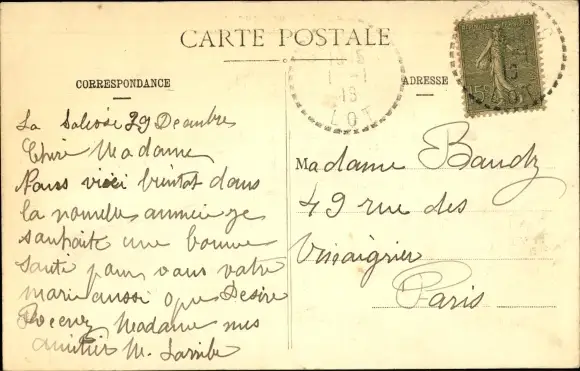 CARTE POSTALE
CORRESPONDANCE
ADRESSE
La 29 Decembre
Chère Madame
Nous voici bientot dans
la nouvelle annnée je
souhaite une bonne
santé pour vous votre
mari aussi que Desire
Recevez Madame mes
amitiés M. Larribe
Madame Baudy
49 rue des
Vinaigrier
Paris
1 - 1
LOT
LOT